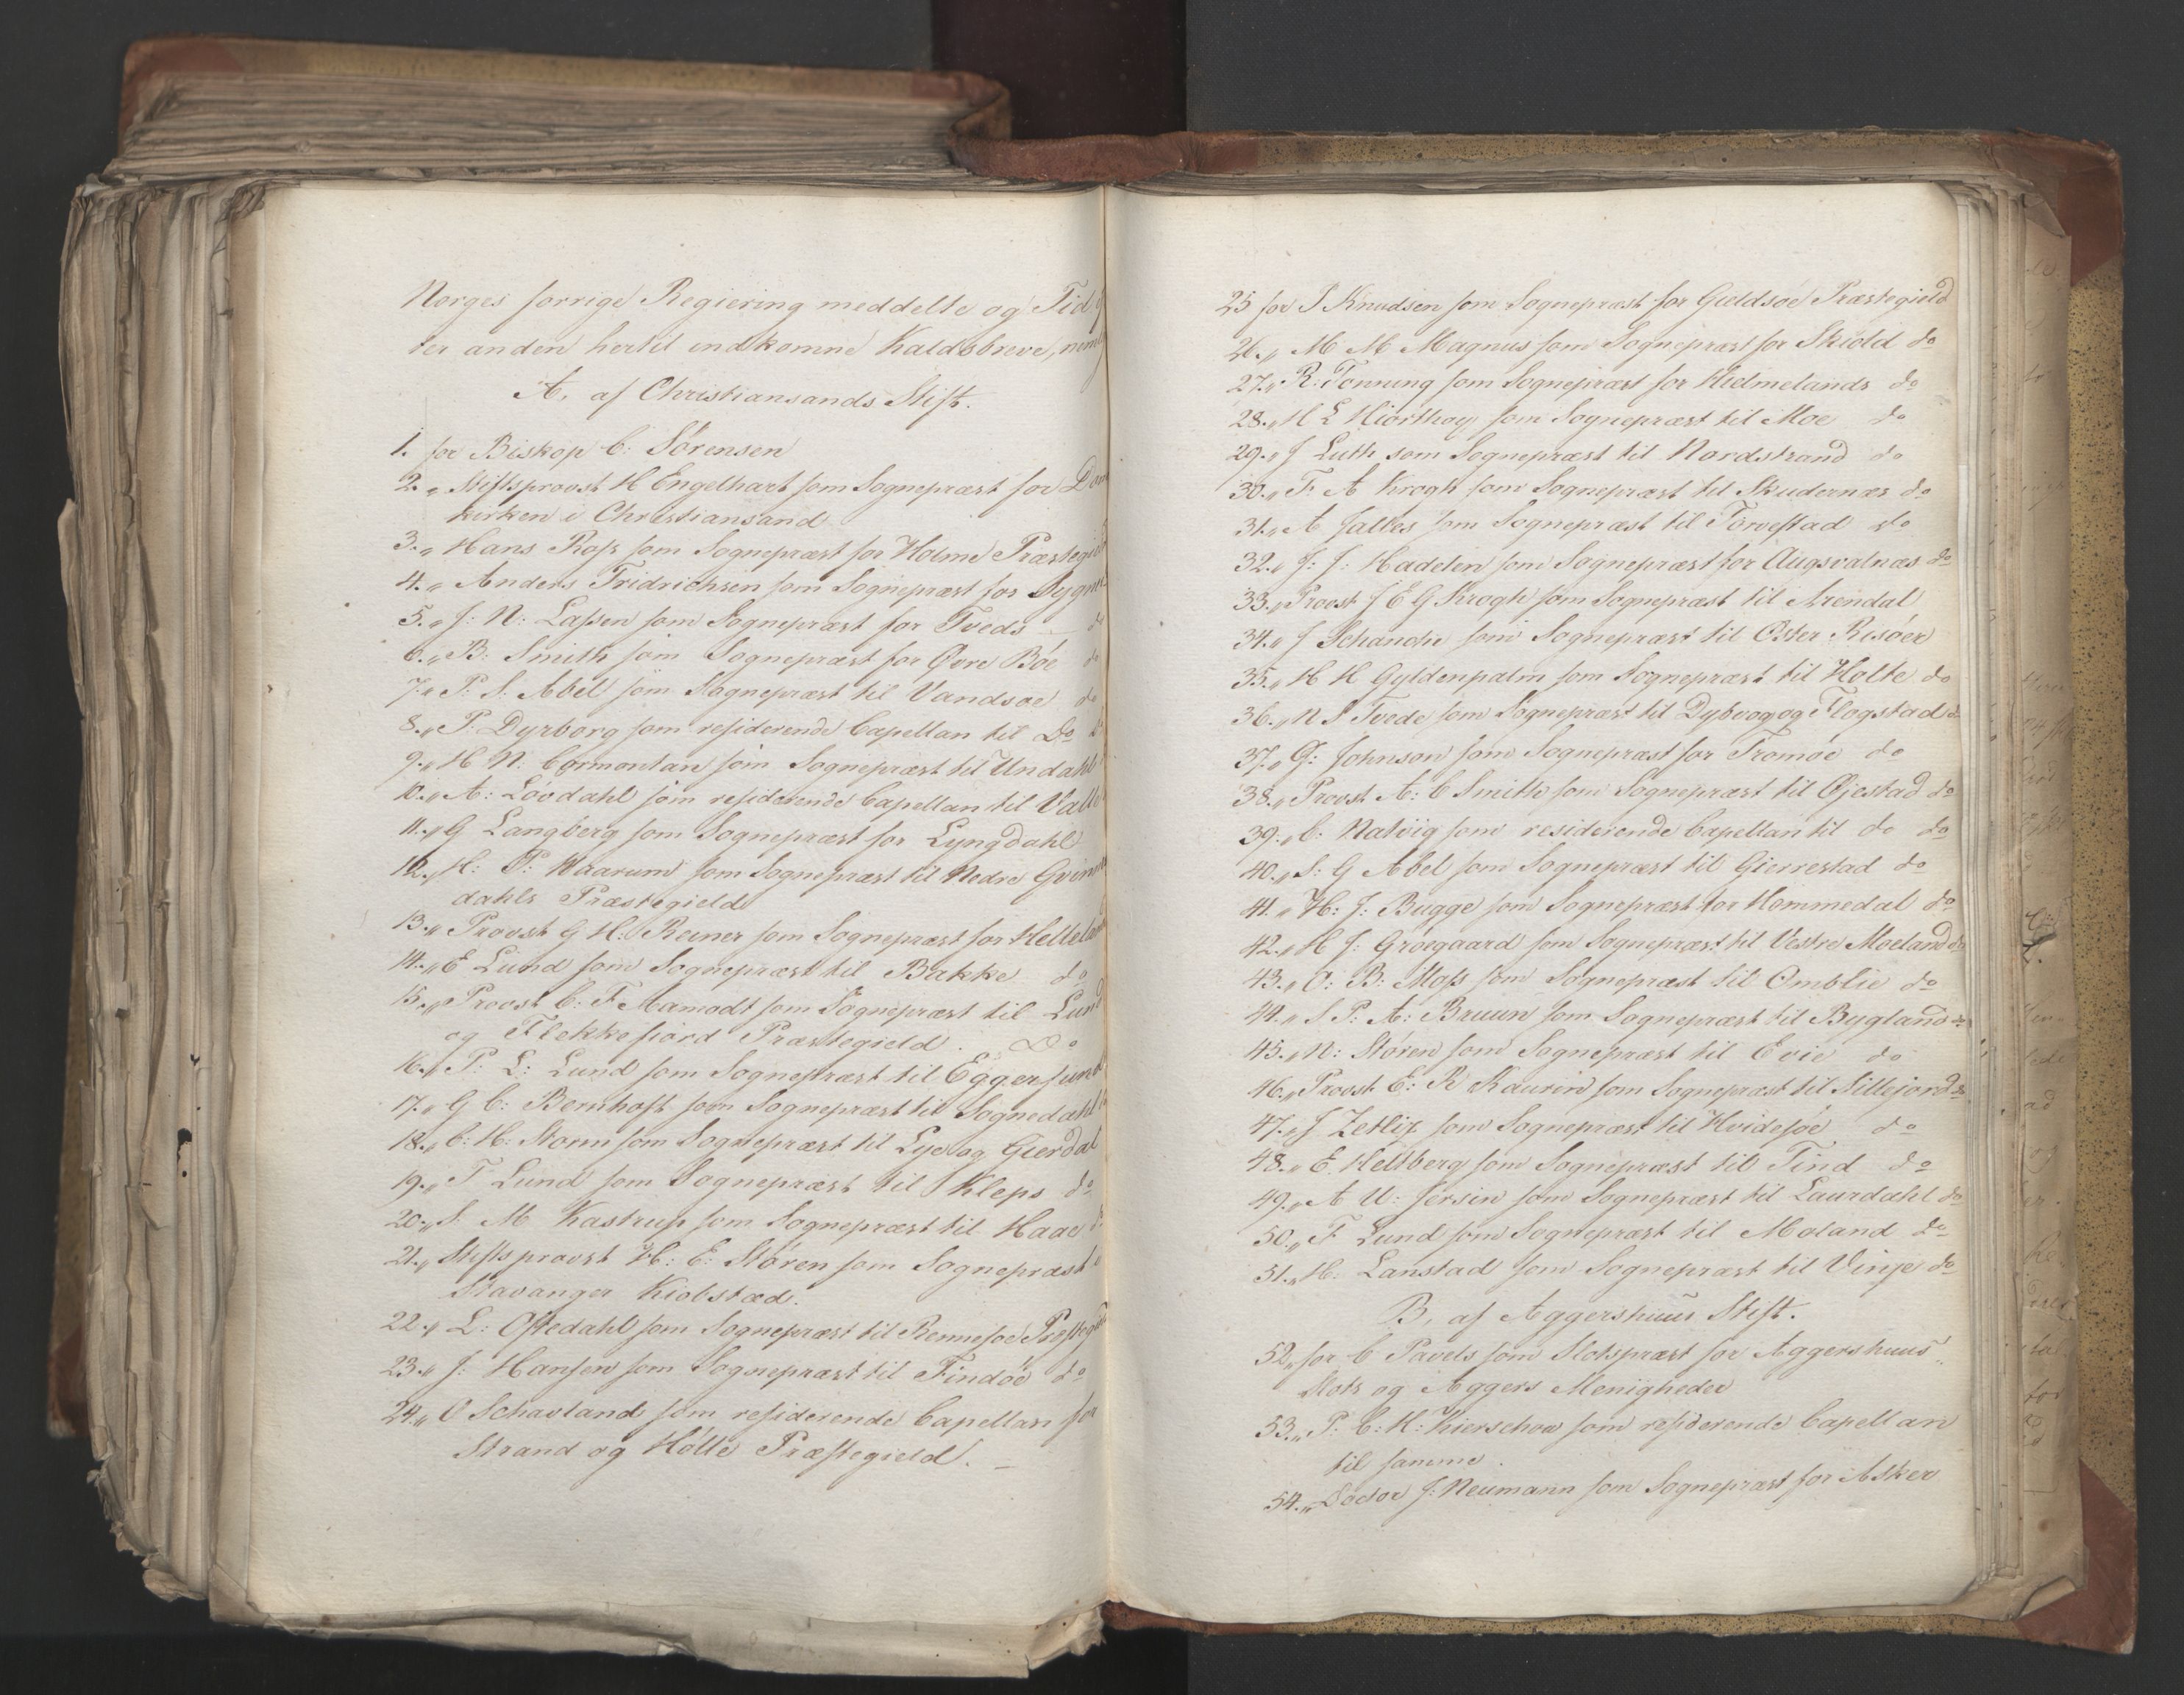 Norges forrige Regiering meddelte og Tid ef
ter anden hertil indkomne Kaldsbreve, neml
A, af Christiansands Stift.
1. for Biskop C: Sørensen
2. „ Stiftsprovst H Engelhart som Sognepræst for Dom
kirken i Christiansand
3. „ Hans Rosz som Sognepræst for Holme Præstegield
4. „ Anders Fridrichsen som Sognepræst for Sygne
5. „ J: N: Lassen som Sognepræst for Tveds do
6. „ B: Smith som Sognepræst for Øvre Bøe do
7. „ P: S: Abel som Sognepræst til Vandsøe do
8. „ P: Dyrborg som residerende Capellan til Do do
9. „ H N: Cormontan som Sognepræst til Undahls
10. „ A: Løvdahl som residerende Capellan til Valle
11. „ G Langberg som Sognepræst for Lyngdahl
12. „ H: P: Waarum som Sognepræst til Nedre Qvinnes
dahls Præstegield
13. „ Provst G H: Reiner som Sognepræst for Helleland
14. „ E Lund som Sognepræst til Bakke do
15. „ Provst C: F Aamodt som Sognepræst til Lund
og Flekkefiord Præstegield. Do
16. „ P: L: Lund som Sognepræst til Eggersund
17. „ G C: Bernhoft som Sognepræst til Sognedahl
18. „ C: H: Storm som Sognepræst til Lye og Gierdal
19. „ T Lund som Sognepræst til Kleps do
20. „ S. M Kastrup som Sognepræst til Haae
21. „ Stiftsprovst H: E: Støren som Sognepræst
Stavanger Kiøbstæd.
22. „ L: Oftedahl som Sognepræst til Rennesøe Præstegield
23. „ J: Hansen som Sognepræst til Findøe do
24. „ O Schavland som residerende Capellan for
Strand og Hølle Præstegield. –
25 for J Knudsen som Sognepræst for Gieldsøe Præstegield
26. „ M M Magnus som Sognepræst for Skiold do
27. „ R: Tonning som Sognepræst for Hielmelands do
28. „ H L Hiorthøy som Sognepræst til Moe do
29. „ J Luth som Sognepræst til Nordstrand do
30. „ F: A Krogh som Sognepræst til Skudernæs do
31. „ A Faltes som Sognepræst til Torvestad do
32. „ J: J: Hadelen som Sognepræst for Augsvalnæs do
33. „ Provst J E G Krogh som Sognepræst til Arendal
34. „ J Schanche som Sognepræst til Oster Risøer
35. „ H H Gyldenpalm som Sognepræst til Holte do
36. „ N S Tvede som Sognepræst til Dybvog og Flogstad do
37. „ G: Johnson som Sognepræst for Tromøe do
38. „ Provst A: C Smith som Sognepræst til Øjestad do
39. „ C: Natvig som residerende Capellan til do do
40. „ S: G Abel som Sognepræst til Gierrestad do
41. „ H: J: Bugge som Sognepræst for Hommedal do
42. „ H J: Grøegaard som Sognepræst til Vestre Moeland do
43. „ O: B: Moss som Sognepræst til Omblie do
44. „ S P: A: Bruun som Sognepræst til Bygland do
45. „ N: Støren som Sognepræst til Evie do
46. „ Provst E: R Kaurin som Sognepræst til Sillejord do
47. „ J Zetliz som Sognepræst til Hvidesøe do
48. „ E. Heltberg som Sognepræst til Tind do
49. „ A U: Jersin som Sognepræst til Laurdahl do
50. „ F Lund som Sognepræst til Moland do
51. „ H: Lanstad som Sognepræst til Vinje do
B, af Aggershuus Stift.
52. „ for C Pavels som Slotspræst for Aggershuus
Slots og Aggers Menigheder
53. „ P: C: H: Kierschow som residerende Capellan
til samme.
54. „ Doctor J: Neumann som Sognepræst for Asker